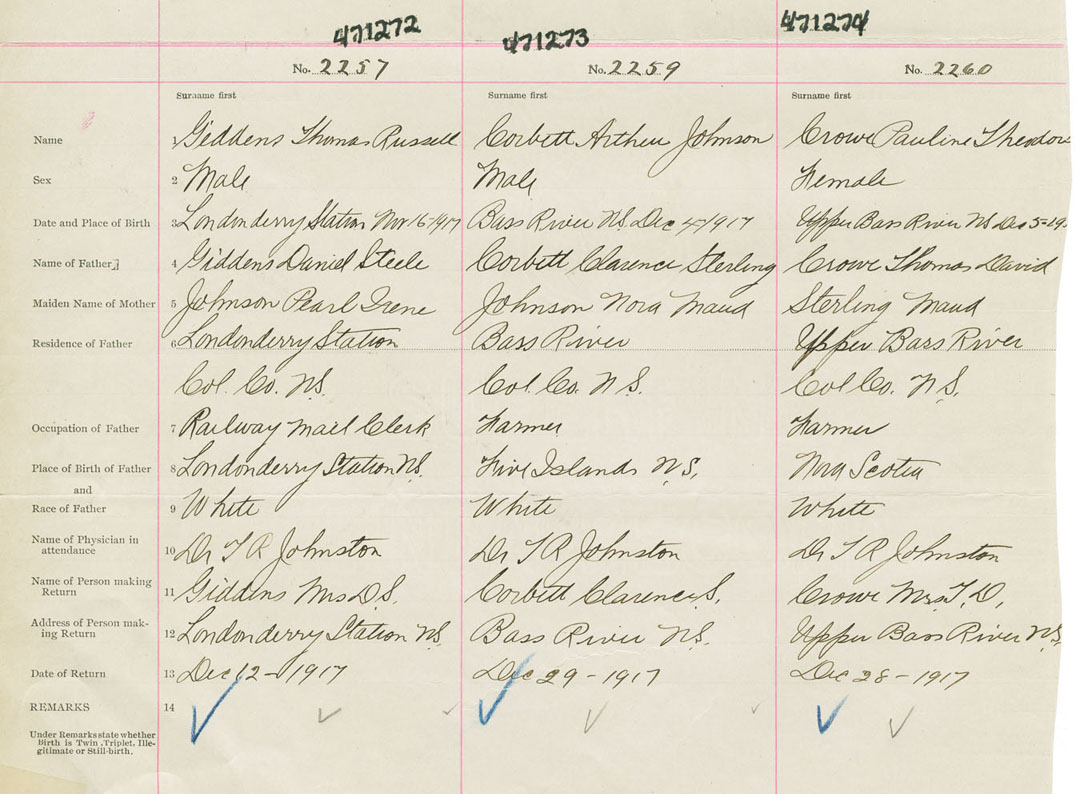 471272 471273 471274
No. 2257 No. 2259 No. 2260
Surname first Surname first Surname first
Name 1 Giddens Thomas Russell Corbett Arthur Johnson Crowe Pauline Theodor
Sex 2 Male Male Female
Date and Place of Birth 3 Londonderry Station Nov 16-1917 Bass River N.S. Dec 4-1917 Upper Bass River NS Dec 5-19
Name of Father 4 Giddens Daniel Steele Corbett Clarence Sterling Crowe Thomas David
Maiden Name of Mother 5 Johnson Pearl Irene Johnson Nora Maud Sterling Maud
Residence of Father 6 Londonderry Station Bass River Upper Bass River
Col. Co. N.S. Col. Co. N.S. Col Co. N.S.
Occupation of Father 7 Railway Mail Clerk Farmer Farmer
Place of Birth of Father 8 Londonderry Station N.S. Five Islands N.S. Nova Scotia
and
Race of Father 9 White White White
Name of Physician in
attendance 10 Dr T R Johnston Dr T R Johnston Dr T R Johnston
Name of Person making
Return 11 Giddens Mrs D.S. Corbett Clarence S. Crowe Mrs T. D.
Address of Person mak-
ing Return 12 Londonderry Station N.S. Bass River N.S. Upper Bass River N.S.
Date of Return 13 Dec 12-1917 Dec 29-1917 Dec 28-1917
REMARKS 14
Under Remarks state whether
Birth is Twin, Triplet, Ille-
gitimate or Still-birth.